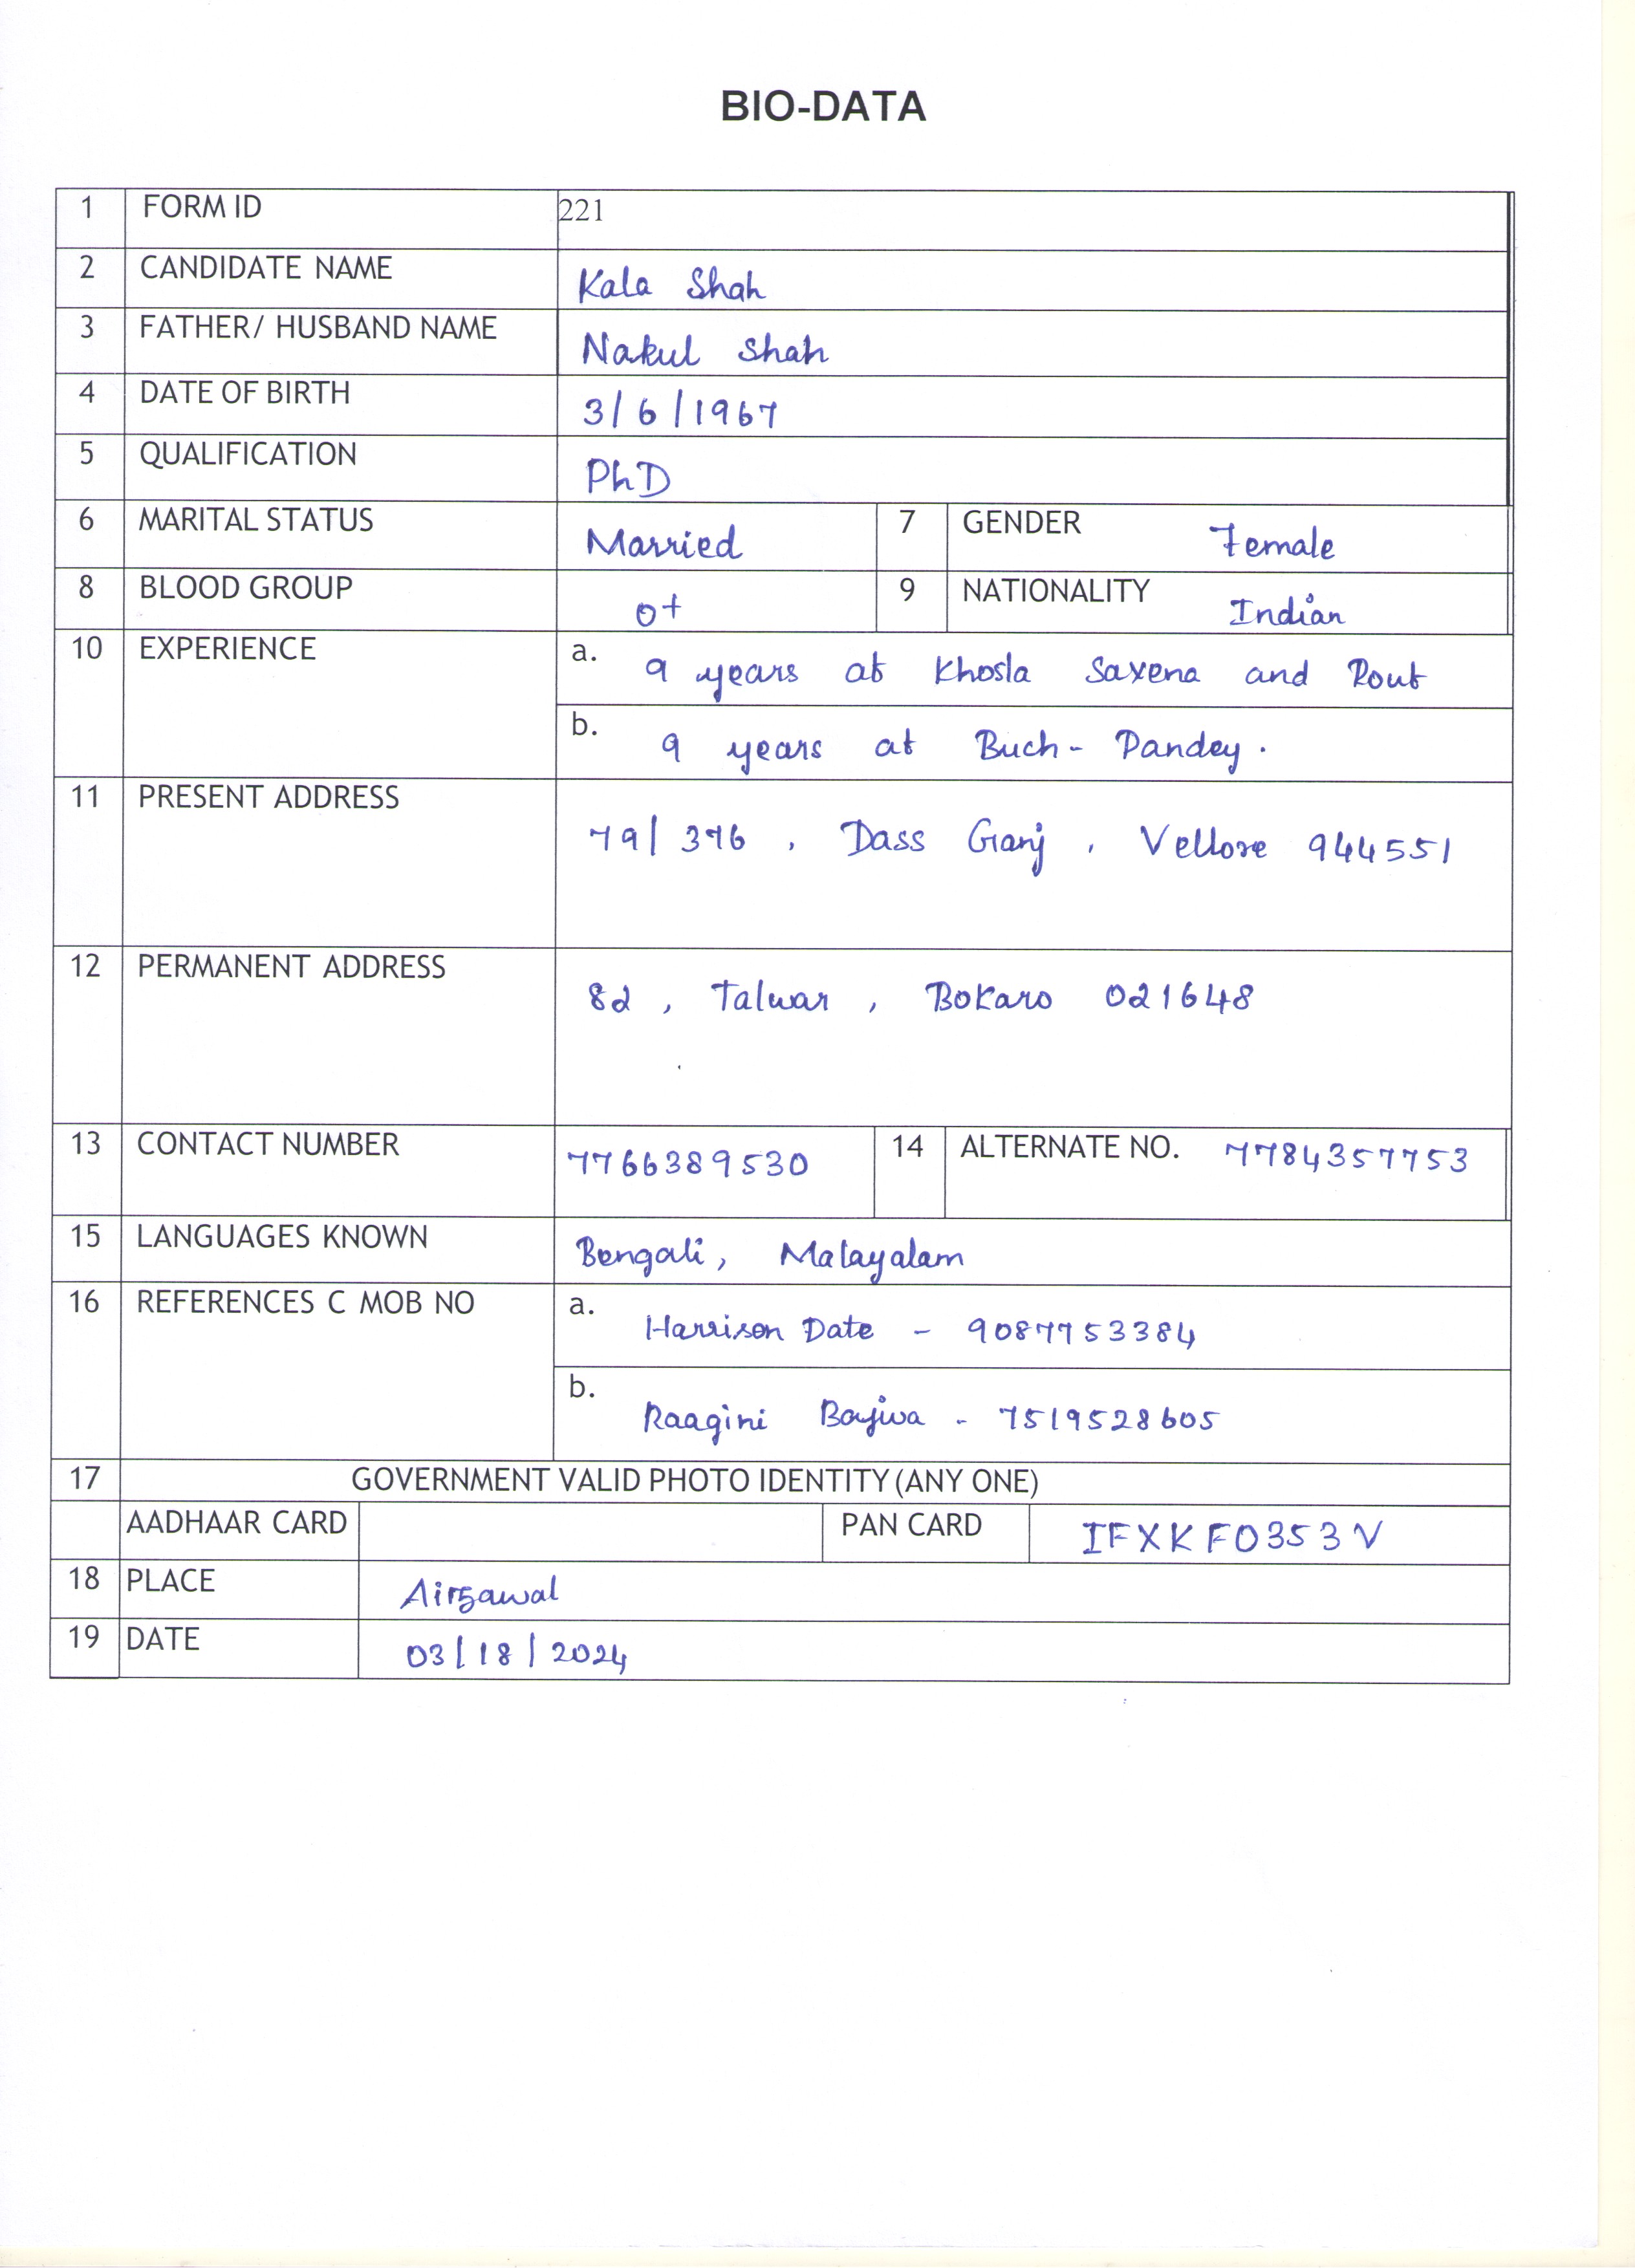 BIO-DATA
1 FORM ID 221
2 CANDIDATE NAME Kala Shah
3 FATHER/ HUSBAND NAME Nakul Shah
4 DATE OF BIRTH 3/6/1967
5 QUALIFICATION PhD
6 MARITAL STATUS Married 7 GENDER Female
8 BLOOD GROUP O+ 9 NATIONALITY Indian
10 EXPERIENCE a. 9 years at Khosla Saxena and Rout
b. 9 years at Buch - Pandey.
11 PRESENT ADDRESS 79/376, Dass Ganj, Vellore 944551
12 PERMANENT ADDRESS 82, Talwar, Bokaro 021648
13 CONTACT NUMBER 7766389530 14 ALTERNATE NO. 7784357753
15 LANGUAGES KNOWN Bengali, Malayalam
16 REFERENCES C MOB NO a. Harrison Date - 9087753384
b. Raagini Bajwa - 7519528605
17 GOVERNMENT VALID PHOTO IDENTITY (ANY ONE)
AADHAAR CARD PAN CARD IFXKF0353V
18 PLACE
19 DATE 03/18/2024